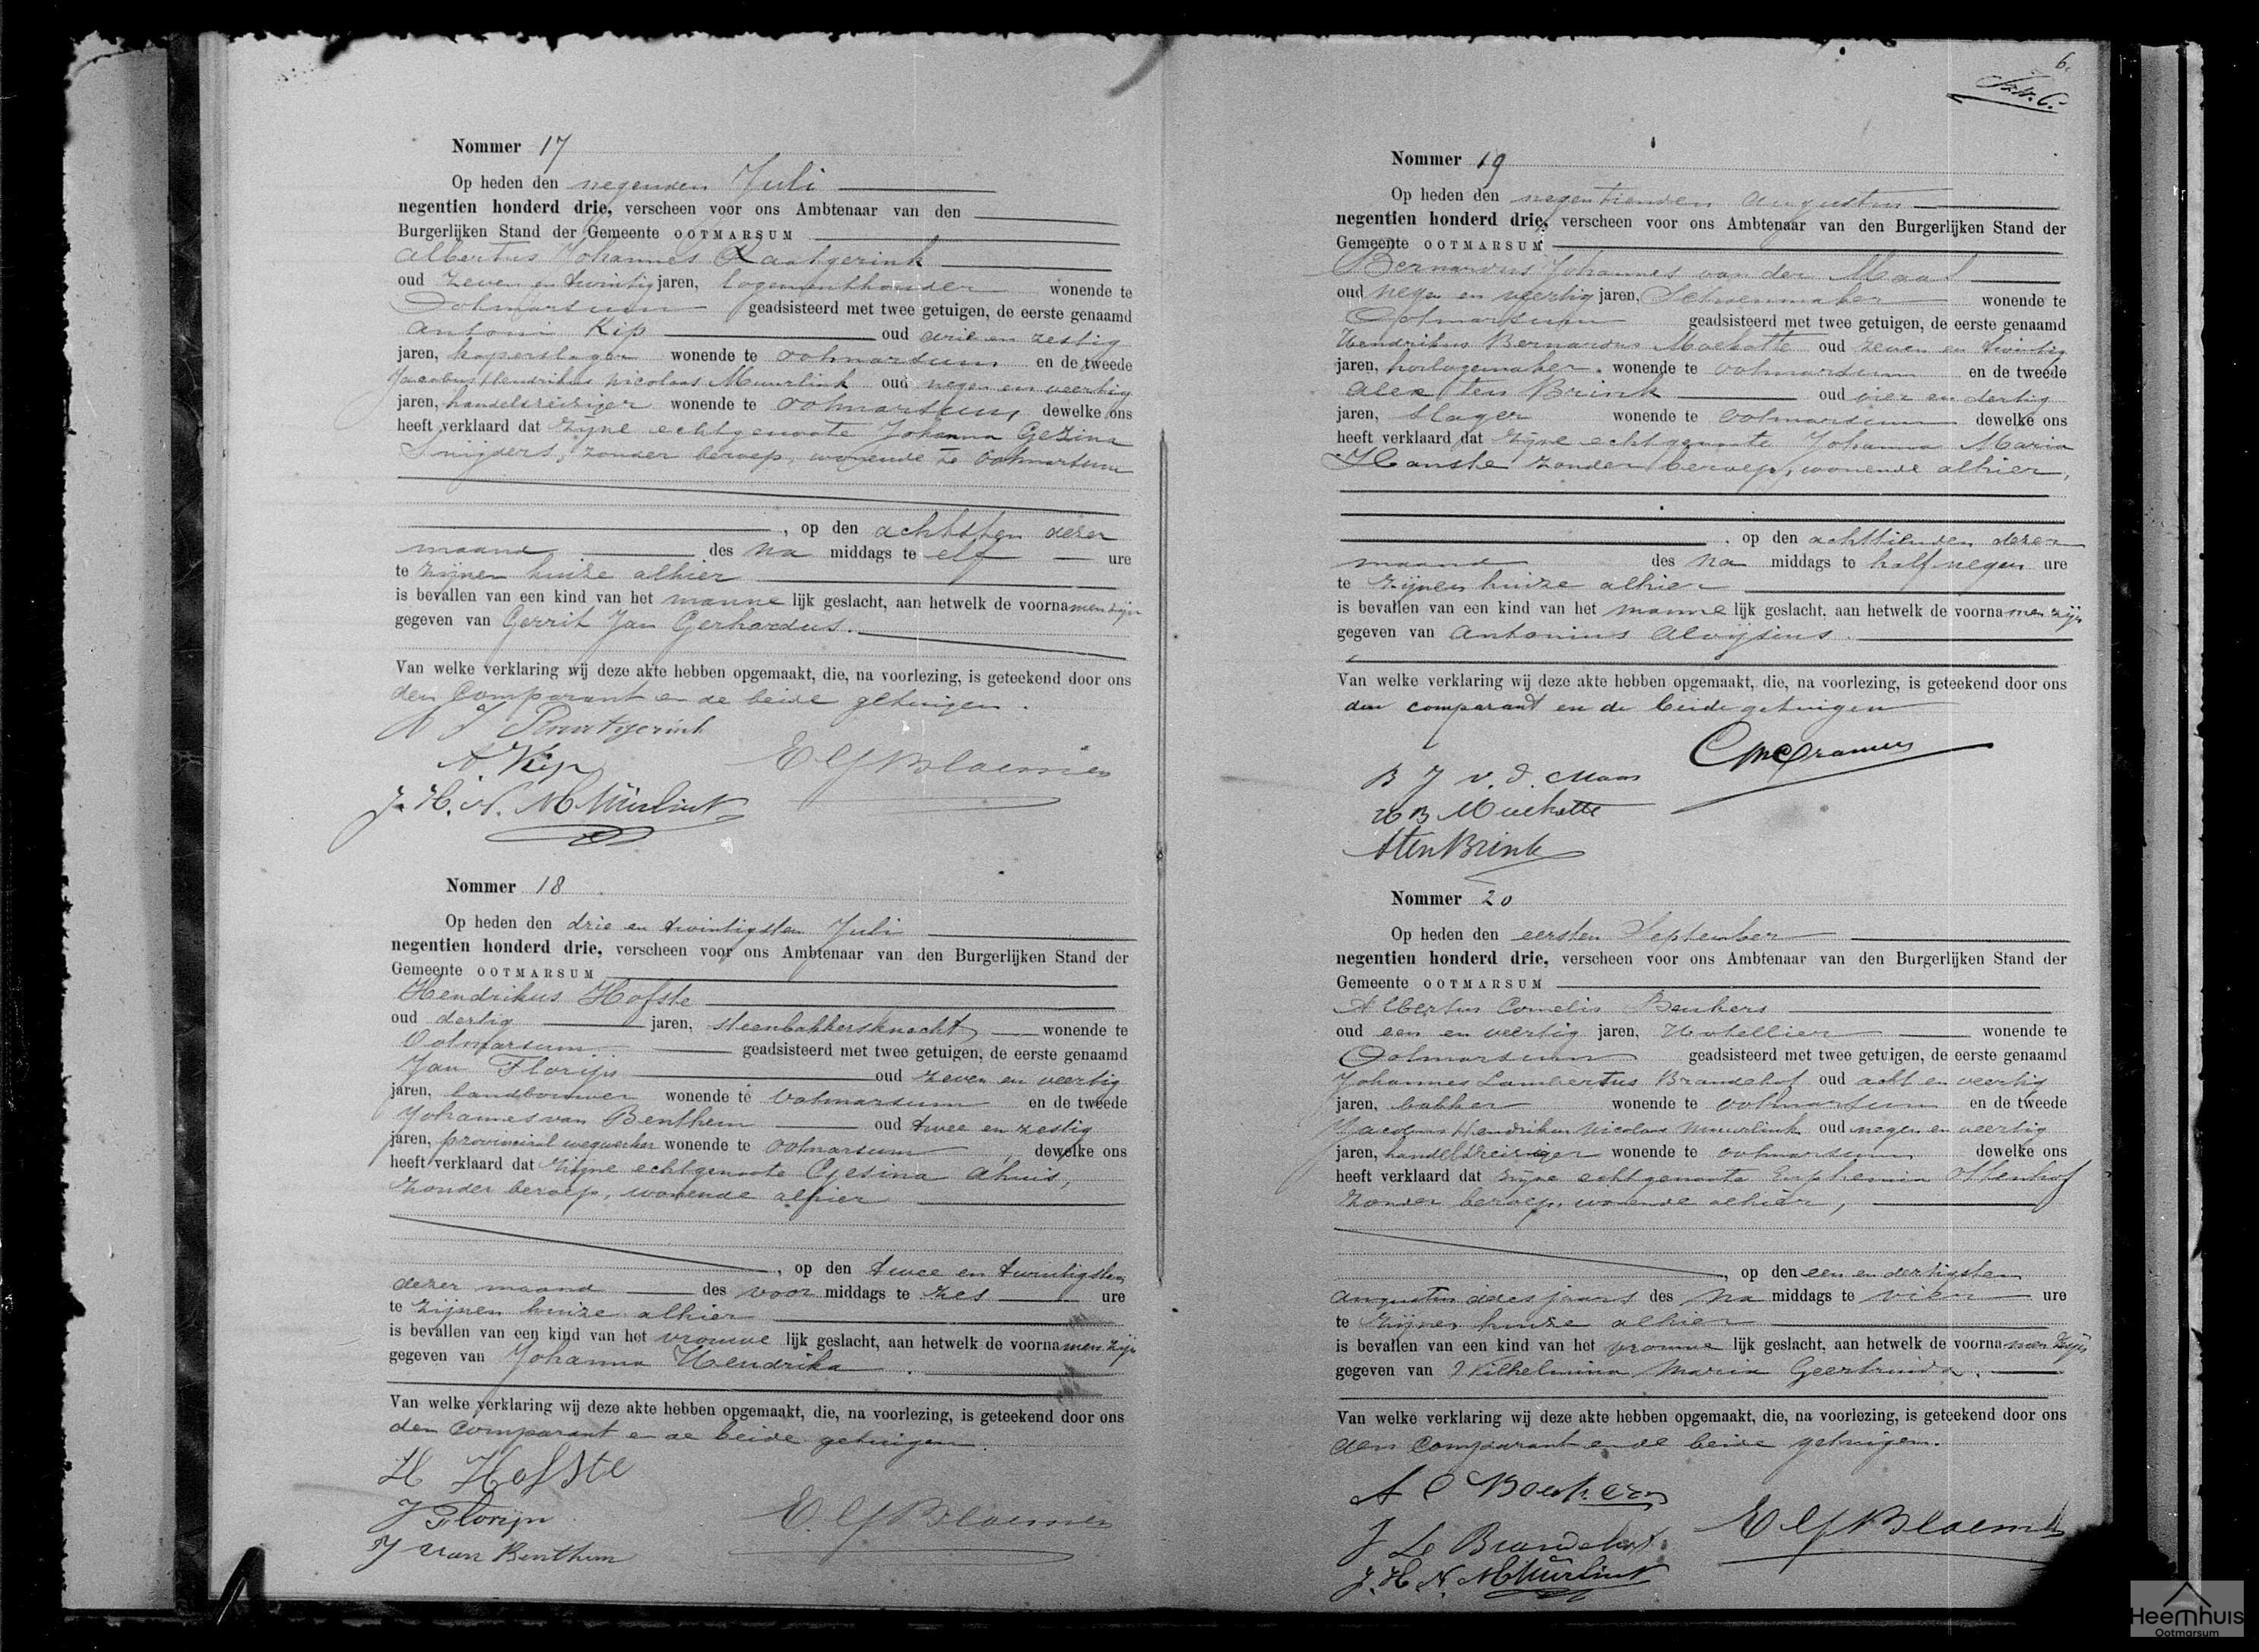 Nommer 17
Op heden den negenden Juli
negentien honderd drie, verscheen voor ons Ambtenaar van den
Burgerlijken Stand der Gemeente OOTMARSUM
Albertus Johannes Raatgerink
oud zeven en twintig jaren, logementhouder wonende te
Ootmarsum geadsisteerd met twee getuigen, de eerste genaamd
Antoni Kip oud drie en zestig
jaren, koperslager wonende te Ootmarsum en de tweede
Jacobus Hendrikus Nicolaas Muurlink oud negen en veertig
jaren, handelsreiziger wonende te Ootmarsum, dewelke ons
heeft verklaard dat zijne echtgenoote Johanna Gezina
Snijders, zonder beroep, wonende te Ootmarsum
, op den achtsten dezer
maand des na middags te elf ure
te zijnen huize alhier
is bevallen van een kind van het manne lijk geslacht, aan hetwelk de voornamen zijn
gegeven van Gerrit Jan Gerhardus.
Van welke verklaring wij deze akte hebben opgemaakt, die, na voorlezing, is geteekend door ons
den Comparant en de beide getuigen.
A J Raatgerink
A. Kip
E G Bloemen
J. H. N. Müürlink
Nommer 18
Op heden den drie en twintigsten Juli
negentien honderd drie, verscheen voor ons Ambtenaar van den Burgerlijken Stand der
Gemeente OOTMARSUM
Hendrikus Hofste
oud dertig jaren, steenbakkersknecht wonende te
Ootmarsum geadsisteerd met twee getuigen, de eerste genaamd
Jan Florijn oud zeven en veertig
jaren, landbouwer wonende te Ootmarsum en de tweede
Johannes van Benthem oud twee en zestig
jaren, provinciaal wegwerker wonende te Ootmarsum, dewelke ons
heeft verklaard dat zijne echtgenoote Gesina Ahuis,
zonder beroep, wonende alhier
, op den twee en twintigsten
dezer maand des voor middags te zes ure
te zijnen huize alhier
is bevallen van een kind van het vrouwe lijk geslacht, aan hetwelk de voornamen zijn
gegeven van Johanna Hendrika.
Van welke verklaring wij deze akte hebben opgemaakt, die, na voorlezing, is geteekend door ons
den Comparant en de beide getuigen.
H Hofste
J Florijn
E. G Bloemen
J van Benthem
6.
Nommer 19
Op heden den negentienden Augustus
negentien honderd drie, verscheen voor ons Ambtenaar van den Burgerlijken Stand der
Gemeente OOTMARSUM
Bernardus Johannes van der Maas
oud negen en veertig jaren, Schoenmaker wonende te
Ootmarsum geadsisteerd met twee getuigen, de eerste genaamd
Hendrikus Bernardus Moekotte oud zeven en twintig
jaren, horlogemaker wonende te Ootmarsum en de tweede
Alex ten Brink oud vier en dertig
jaren, slager wonende te Ootmarsum dewelke ons
heeft verklaard dat zijne echtgenoote Johanna Maria
Hanske zonder beroep, wonende alhier,
, op den achttienden dezer
maand des na middags te half negen ure
te zijnen huize alhier
is bevallen van een kind van het manne lijk geslacht, aan hetwelk de voornamen zijn
gegeven van Antonius Aloijsius.
Van welke verklaring wij deze akte hebben opgemaakt, die, na voorlezing, is geteekend door ons
den comparant en de beide getuigen
Cramer
B J v. d. Maas
H B Moekotte
A ten Brink
Nommer 20
Op heden den eersten September
negentien honderd drie, verscheen voor ons Ambtenaar van den Burgerlijken Stand der
Gemeente OOTMARSUM
Albertus Cornelis Beukers
oud een en veertig jaren, Hotellier wonende te
Ootmarsum geadsisteerd met twee getuigen, de eerste genaamd
Johannes Lambertus Brandehof oud acht en veertig
jaren, bakker wonende te Ootmarsum en de tweede
Jacobus Hendrikus Nicolaas Muurlink oud negen en veertig
jaren, handelsreiziger wonende te Ootmarsum dewelke ons
heeft verklaard dat zijne echtgenoote Euphemia Ottenhof
zonder beroep, wonende alhier,
, op den een en dertigsten
Augustus dezes jaars des na middags te vier ure
te zijnen huize alhier
is bevallen van een kind van het vrouwe lijk geslacht, aan hetwelk de voornamen zijn
gegeven van Wilhelmina Maria Geertruida.
Van welke verklaring wij deze akte hebben opgemaakt, die, na voorlezing, is geteekend door ons
den Comparant en de beide getuigen.
A C Beukers
E G Bloemen
J L Brandehof
J. H. N. Müürlink
Heemhuis
Ootmarsum